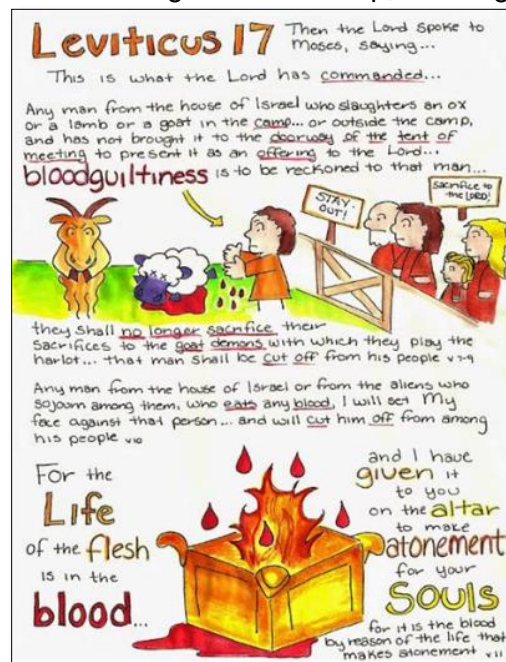 Leviticus 17
Then the Lord spoke to
Moses, saying...
This is what the Lord has commanded...
Any man from the house of Israel who slaughters an ox
or a lamb or a goat in the camp... or outside the camp,
and has not brought it to the doorway of the tent of
meeting to present it as an offering to the Lord...
bloodguiltiness is to be reckoned to that man...
STAY
OUT!
Sacrifice to
the LORD!
they shall no longer sacrifice their
sacrifices to the goat demons with which they play the
harlot... that man shall be cut off from his people v 7-9
Any man from the house of Israel or from the aliens who
sojourn among them, who eats any blood, I will set My
face against that person... and will cut him off from among
his people v10
For the
Life
of the flesh
is in the
blood...
and I have
given it
to you
on the altar
to make
atonement
for your
Souls
for it is the blood
by reason of the life that
makes atonement v 11